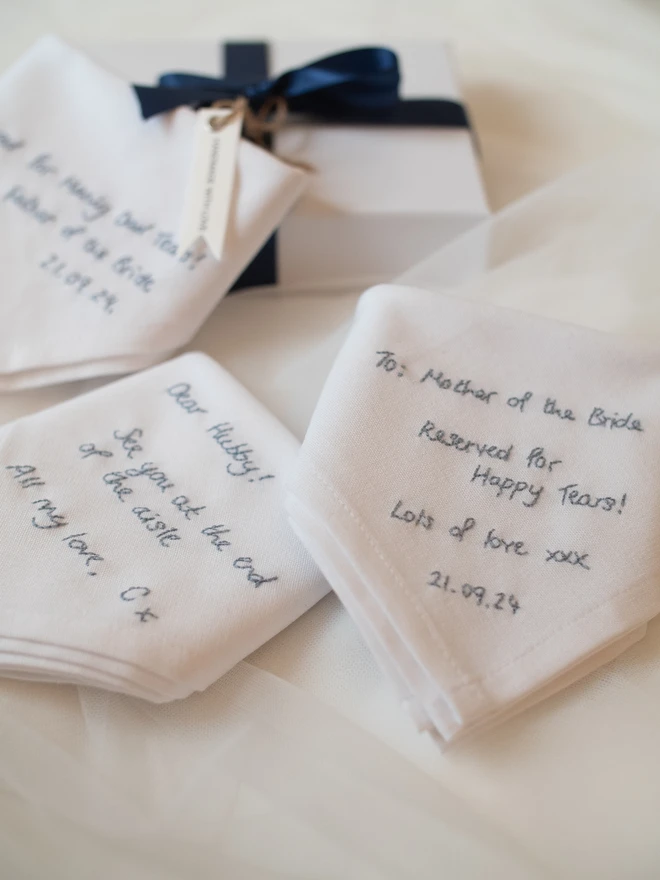 for Manly Dad Tears!
Father of the Bride
21.09.24.
Dear Hubby!
See you at the end
of the aisle
All my love,
C x
To: Mother of the Bride
Reserved for
Happy Tears!
Lots of love xxx
21.09.24